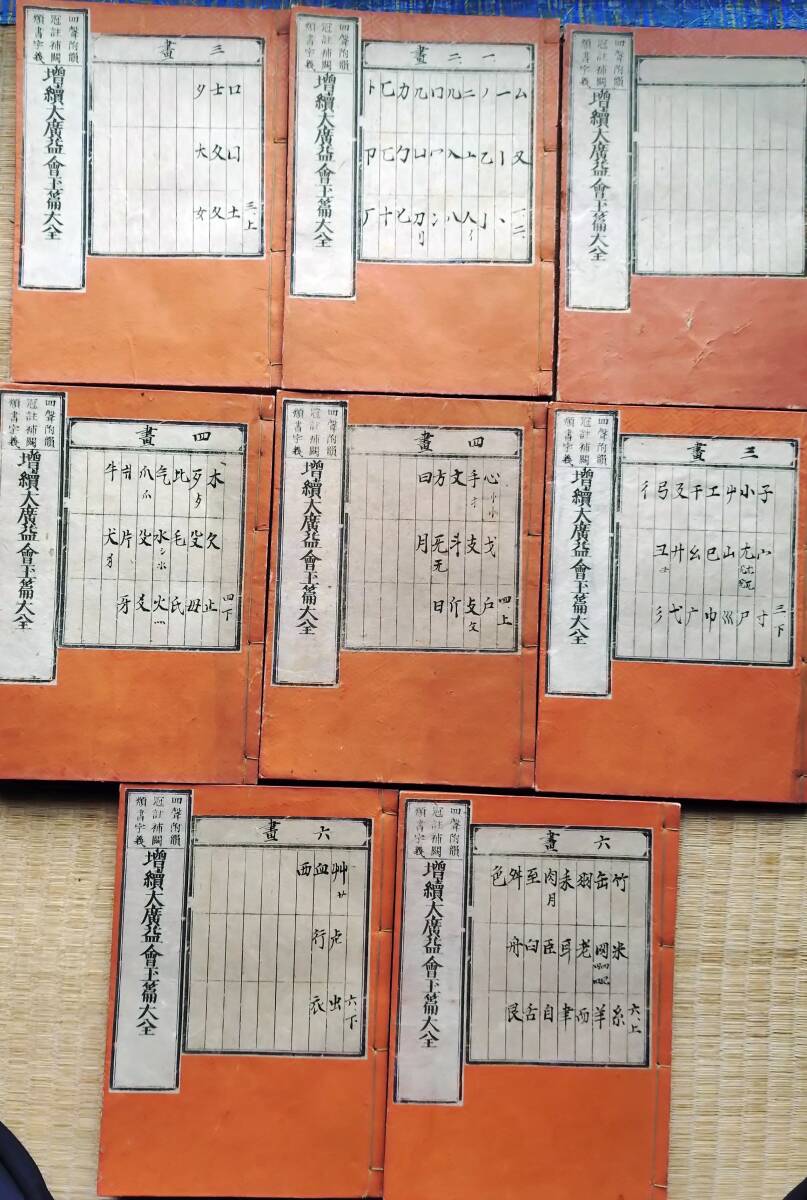 四聲附韻
冠註補闕
類書字義
增續大廣益會玉篇大全
一二畫
一.二
ム又
一丨丶
ノ乙亅
二亠人亻
儿入八
冂冖冫
几凵刀刂
力勹匕
匚匸十
卜卩厂
四聲附韻
冠註補闕
類書字義
增續大廣益會玉篇大全
三畫
三.上
口囗土
士夂夊
夕大女
四聲附韻
冠註補闕
類書字義
增續大廣益會玉篇大全
三畫
三.下
子宀寸
小尢尸
屮山巛
工巳巾
干幺广
廴廾弋
弓彑彡
彳
四聲附韻
冠註補闕
類書字義
增續大廣益會玉篇大全
四畫
四.上
心忄㣺戈戶
手扌支攴攵
文斗斤
方无旡日
曰月
四聲附韻
冠註補闕
類書字義
增續大廣益會玉篇大全
四畫
四下
木欠止
歹歺殳毋
比毛氏
气水氵氺火灬
爪爫父爻
爿片牙
牛犬犭
四聲附韻
冠註補闕
類書字義
增續大廣益會玉篇大全
六畫
六上
竹米糸
缶网羊
羽老而
耒耳聿
肉月臣自
至臼舌
舛舟艮
色
四聲附韻
冠註補闕
類書字義
增續大廣益會玉篇大全
六畫
六.下
艸艹虍虫
血行衣
西
四聲附韻
冠註補闕
類書字義
增續大廣益會玉篇大全